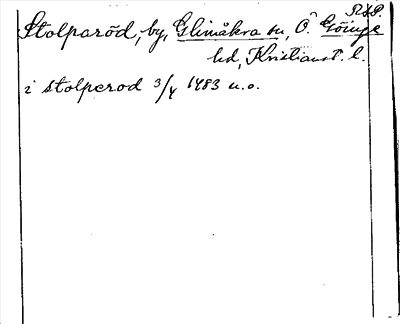 R.&P.
Stolparöd, by, Glimåkra sn, Ö. Göinge
hd, Kristianst. l.
i stolperod 3/4 1483 u.o.